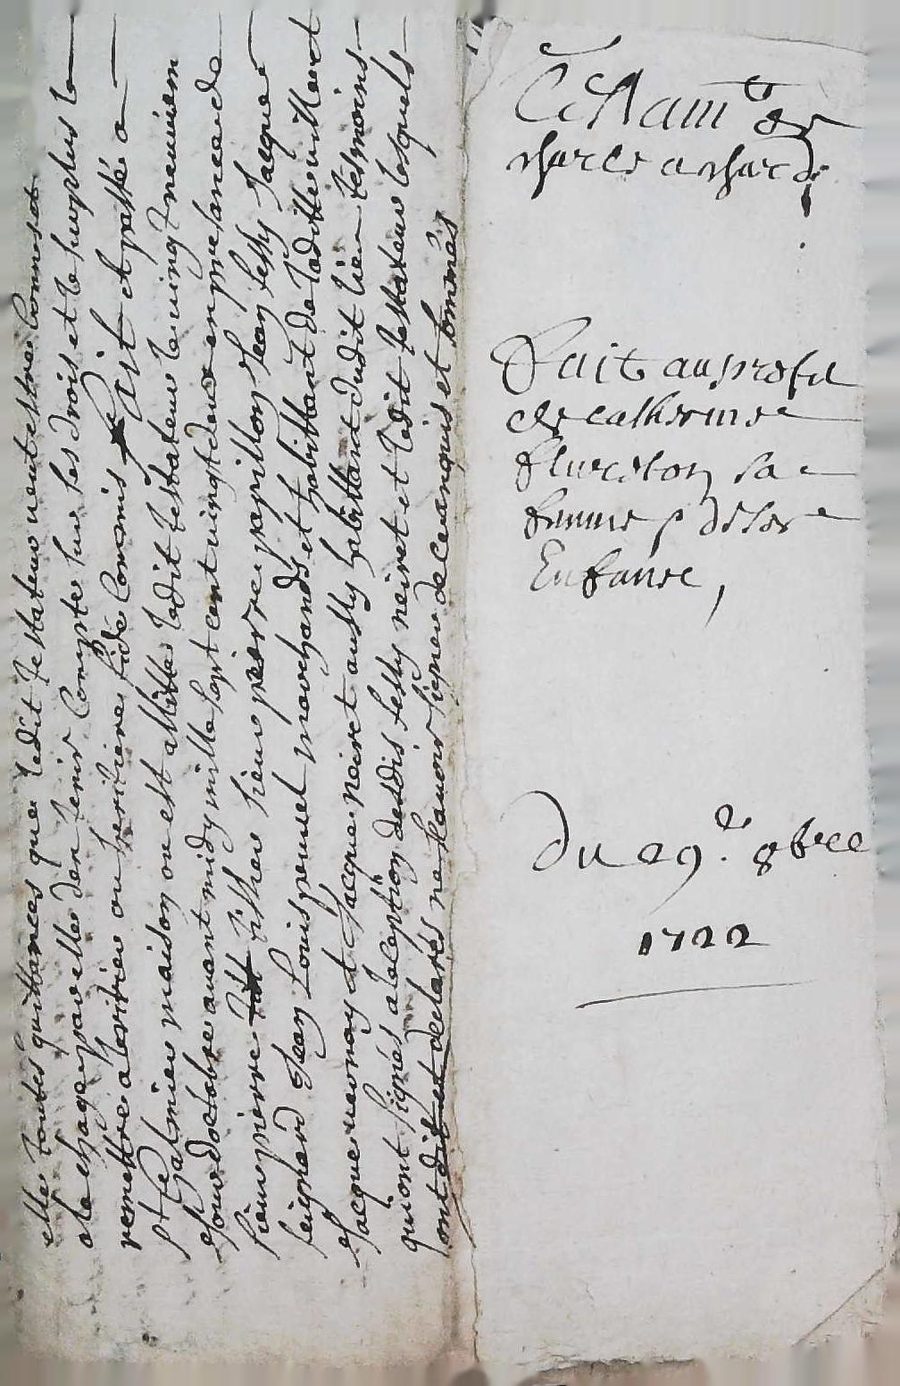 elle toutes quittances que ledit testateur veut estre bonnes et
a la charge par elle den tenir compte sur les drois et le surplus le
remettre a leritier ou heritiere fide commis fait et passé a
St Galmier maison ou est allitté ledit testateur le vingt neuviem
jour doctobre avant midy mille sept cent vingt deux en presance de
sieur pierre sieur pierre papillon Jean Jacque
Jean Louis marchands et habittant de laditte
Jacque et Jacque neiret aussy habittant dudit lieu tesmoins
qui ont signés a lexeption desdis neiret et ledit testateur lesquels
ont dit et declarés ne scavoir signer de ce enquis et sommés
Testamt de
charle achard
Fait au profit
de catherine
sa
famme & de ses
Enfans,
Du 29e 8bre
1722